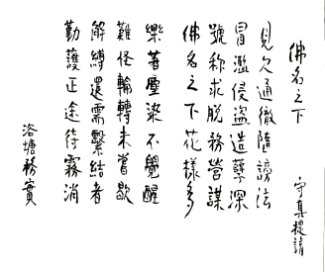 佛名之下
守真提請
見欠通徹隨謗法
冒濫侵盜造孽深
號称求脫務營謀
佛名之下花樣多
樂著塵染不覺醒
難怪輪轉未嘗歇
解縛還需繫結者
勤護正途待霧消
洛塘務實